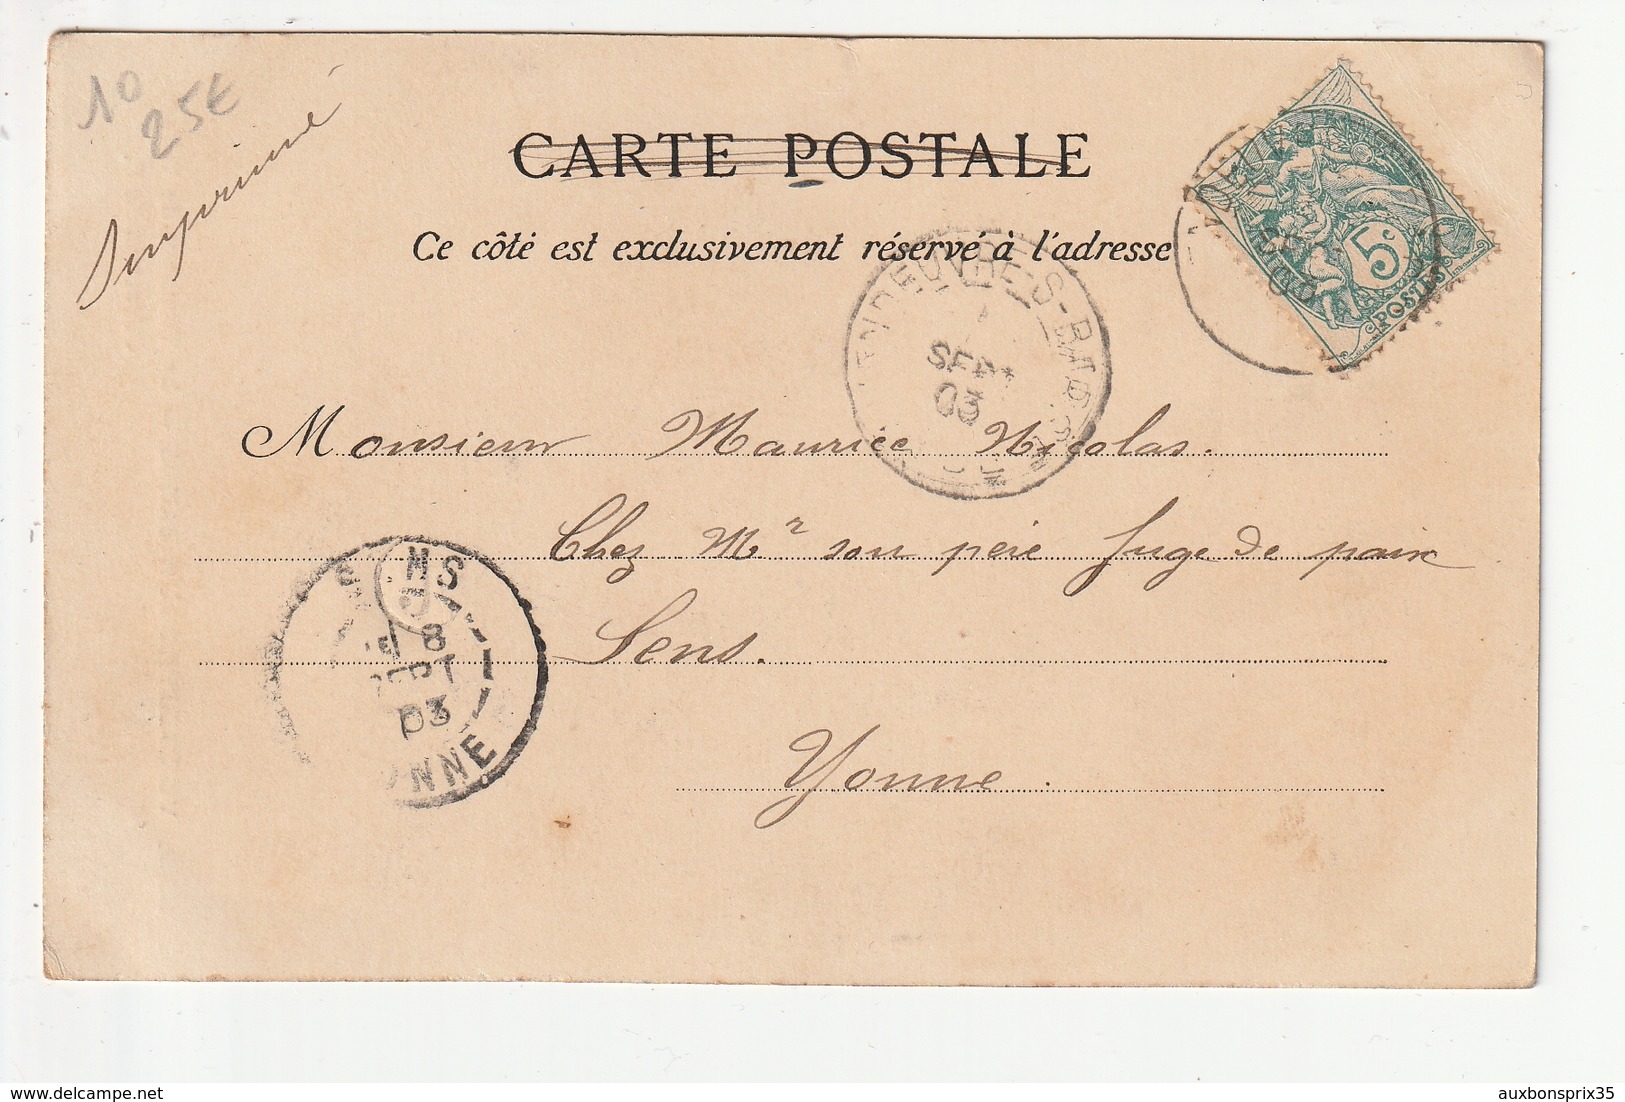 10
25€
Imprimé
CARTE POSTALE
Ce côté est exclusivement réservé à l'adresse
5c
POSTES
SEPT
03
Monsieur Maurice Nicolas.
Chez Mr son père Juge de paix
Sens.
Yonne.
8
SEPT
03
YONNE
delcampe.net
auxbonsprix35